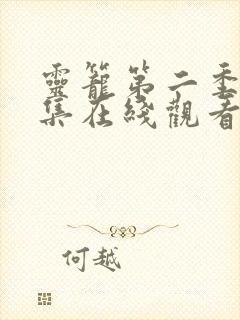 靈籠第二季
集在綫觀看
何越